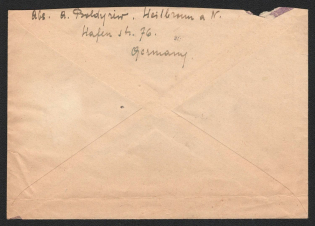 Abs. A. Boldyriew, Heilbronn a N.
Hafen str. 76.
Germany.